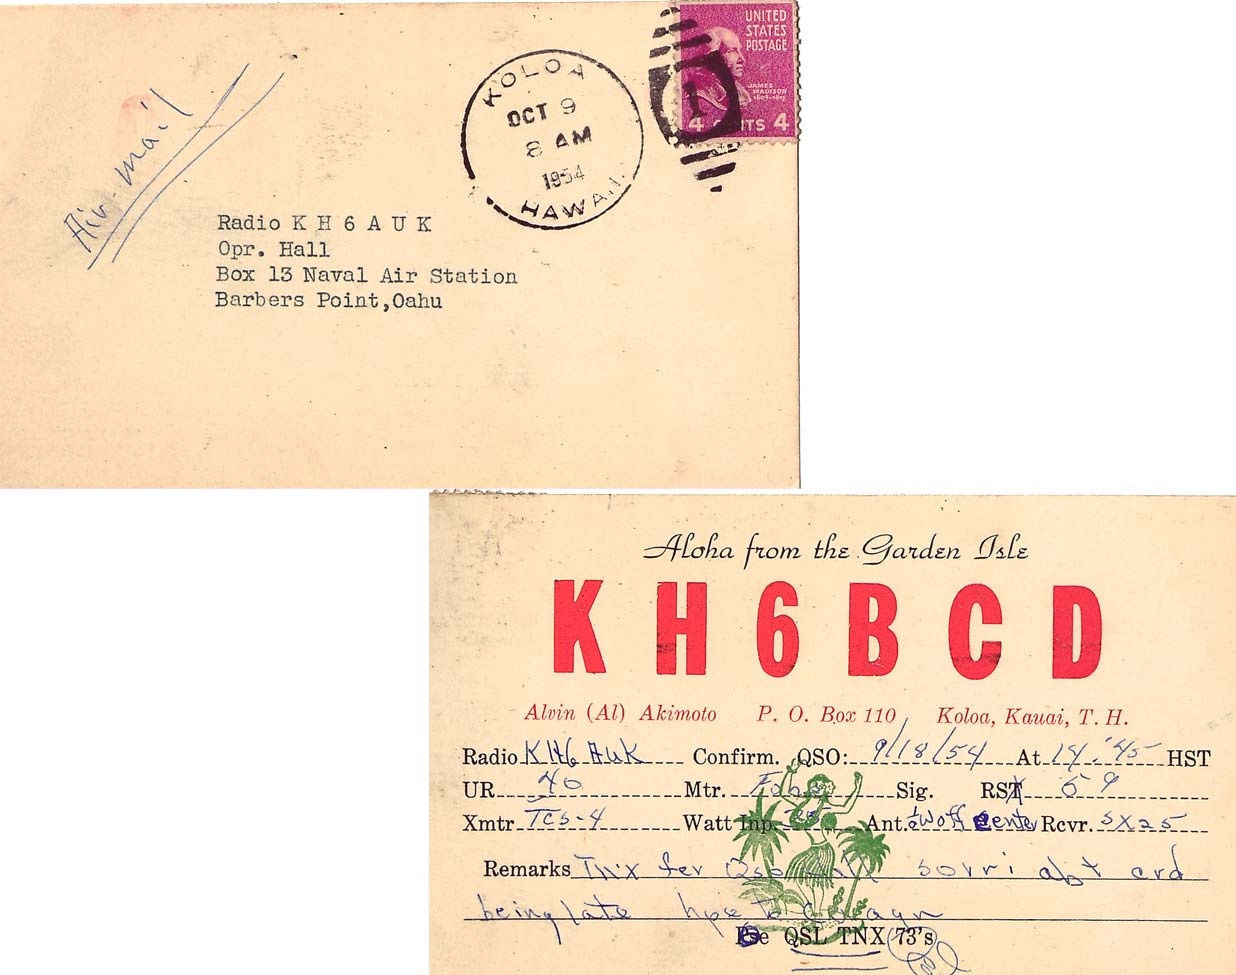 Air-mail
KOLOA
OCT 9
8 AM
1954
HAWA.I.
UNITED
STATES
POSTAGE
JAMES
MADISON
1809-1817
4 CENTS 4
1
Radio K H 6 A U K
Opr. Hall
Box 13 Naval Air Station
Barbers Point,Oahu
Aloha from the Garden Isle
KH6BCD
Alvin (Al) Akimoto P. O. Box 110, Koloa, Kauai, T. H.
Radio KH6 AUK Confirm. QSO: 9/18/54 At 14:45 HST
UR 40 Mtr. Fone Sig. RST 59
Xmtr TCS-4 Watt Inp. 25 Ant. off center Rcvr. SX25
Remarks Tnx fer Qso sorri abt crd
being late hpe to agn
QSL TNX 73's